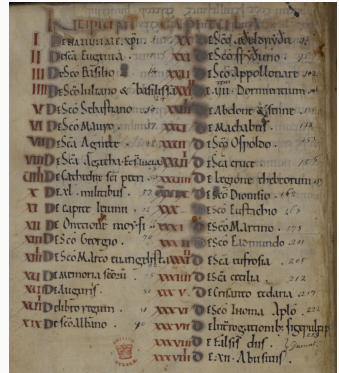 INCIPIUNT CAPITULA
I De natiuitate xpi
II De scā Eugenia
III De scō Basilio
IIII De scō Iuliano & basilissa
V De scō Sebastiano
VI De scō Mauro
VII De scā Agnete
VIII De scā Agatha
VIIII De Cathedra sci petri
X De xl. militibus
XI De capite ieiunii
XII De Oratione moysi
XIII De scō Georgio
XIIII De scō Marco euangelista
XV De memoria scōrū
XVI De Auguriis
XVII De libro regum
XIX De scō Albano
XX De scā æðeldryða
XXI De scō swyðuno
XXII De scō Appollonare
De .vii. Dormientium
De Abdone & senne
XXV De Machabeis
XXVI De scō Osƿoldo
XXVII De scā cruce
De legione thebeorum
De scō Dionisio
XXX De scō Eustachio
XXXI De scō Martino
XXXII De scō Eadmundo
De scā eufrosia
XXXIIII De scā cecilia
XXXV De Crisanto & daria
De scō Thoma Aplo
XXXVII De Interrogationib; sigepulfi pr
De falsis diis
XXXVIIII De .xii. Abusiuis